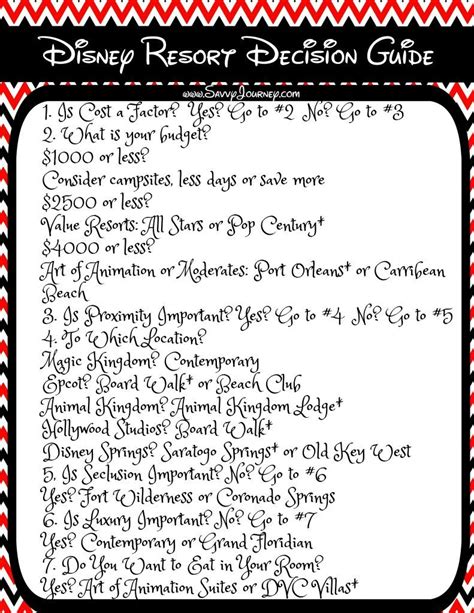 Disney Resort Decision Guide
www.SavvyJourney.com
1. Is Cost a Factor? Yes? Go to #2 No? Go to #3
2. What is your budget?
$1000 or less?
Consider campsites, less days or save more
$2500 or less?
Value Resorts: All Stars or Pop Century†
$4000 or less?
Art of Animation or Moderates: Port Orleans† or Carribean
Beach
3. Is Proximity Important? Yes? Go to #4 No? Go to #5
4. To Which Location?
Magic Kingdom? Contemporary
Epcot? Board Walk† or Beach Club
Animal Kingdom? Animal Kingdom Lodge†
Hollywood Studios? Board Walk†
Disney Springs? Saratogo Springs† or Old Key West
5. Is Seclusion Important? No? Go to #6
Yes? Fort Wilderness or Coronado Springs
6. Is Luxury Important? No? Go to #7
Yes? Contemporary or Grand Floridian
7. Do You Want to Eat in Your Room?
Yes? Art of Animation Suites or DVC Villas†